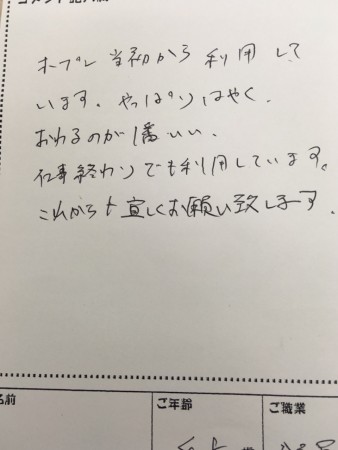 オープン当初から利用して
います。やっぱりはやく、
おわるのが1番いい、
仕事終わりでも利用しています。
これからも宜しくお願い致します。
名前 ご年齢 ご職業